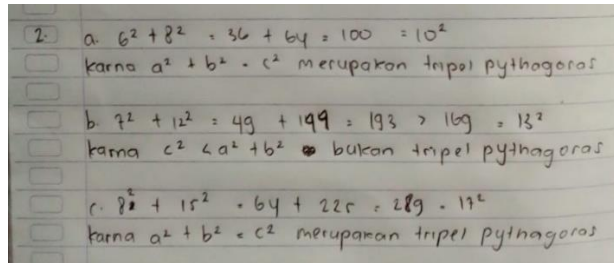 2. a. 6² + 8² = 36 + 64 = 100 = 10²
karna a² + b² = c² merupakan tripel pythagoras
b. 7² + 12² = 49 + 199 = 193 > 169 = 13²
karna c² < a² + b² bukan tripel pythagoras
c. 8² + 15² = 64 + 225 = 289 = 17²
karna a² + b² = c² merupakan tripel pythagoras